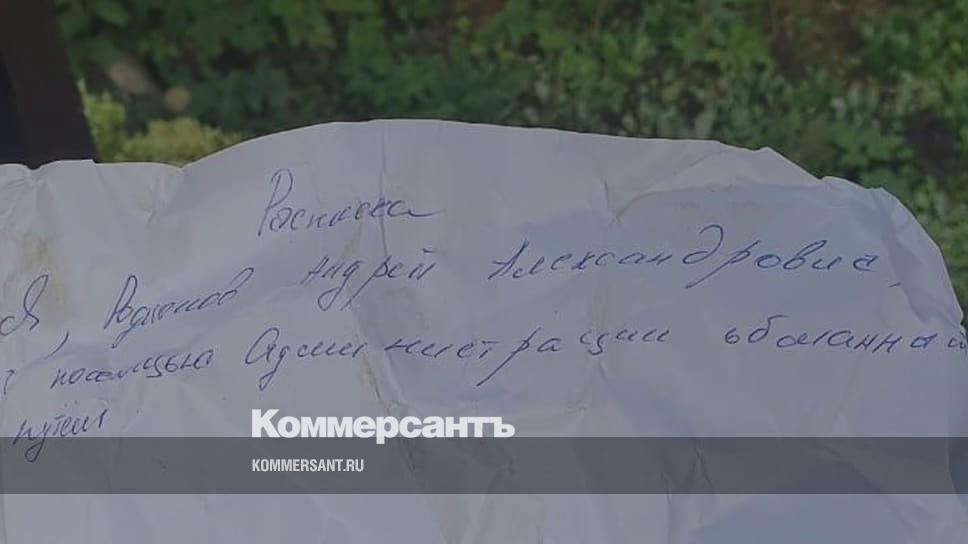 Расписка
Я, Родионов Андрей Александрович
с помощью Администрации обманным
путём
Коммерсантъ
KOMMERSANT.RU